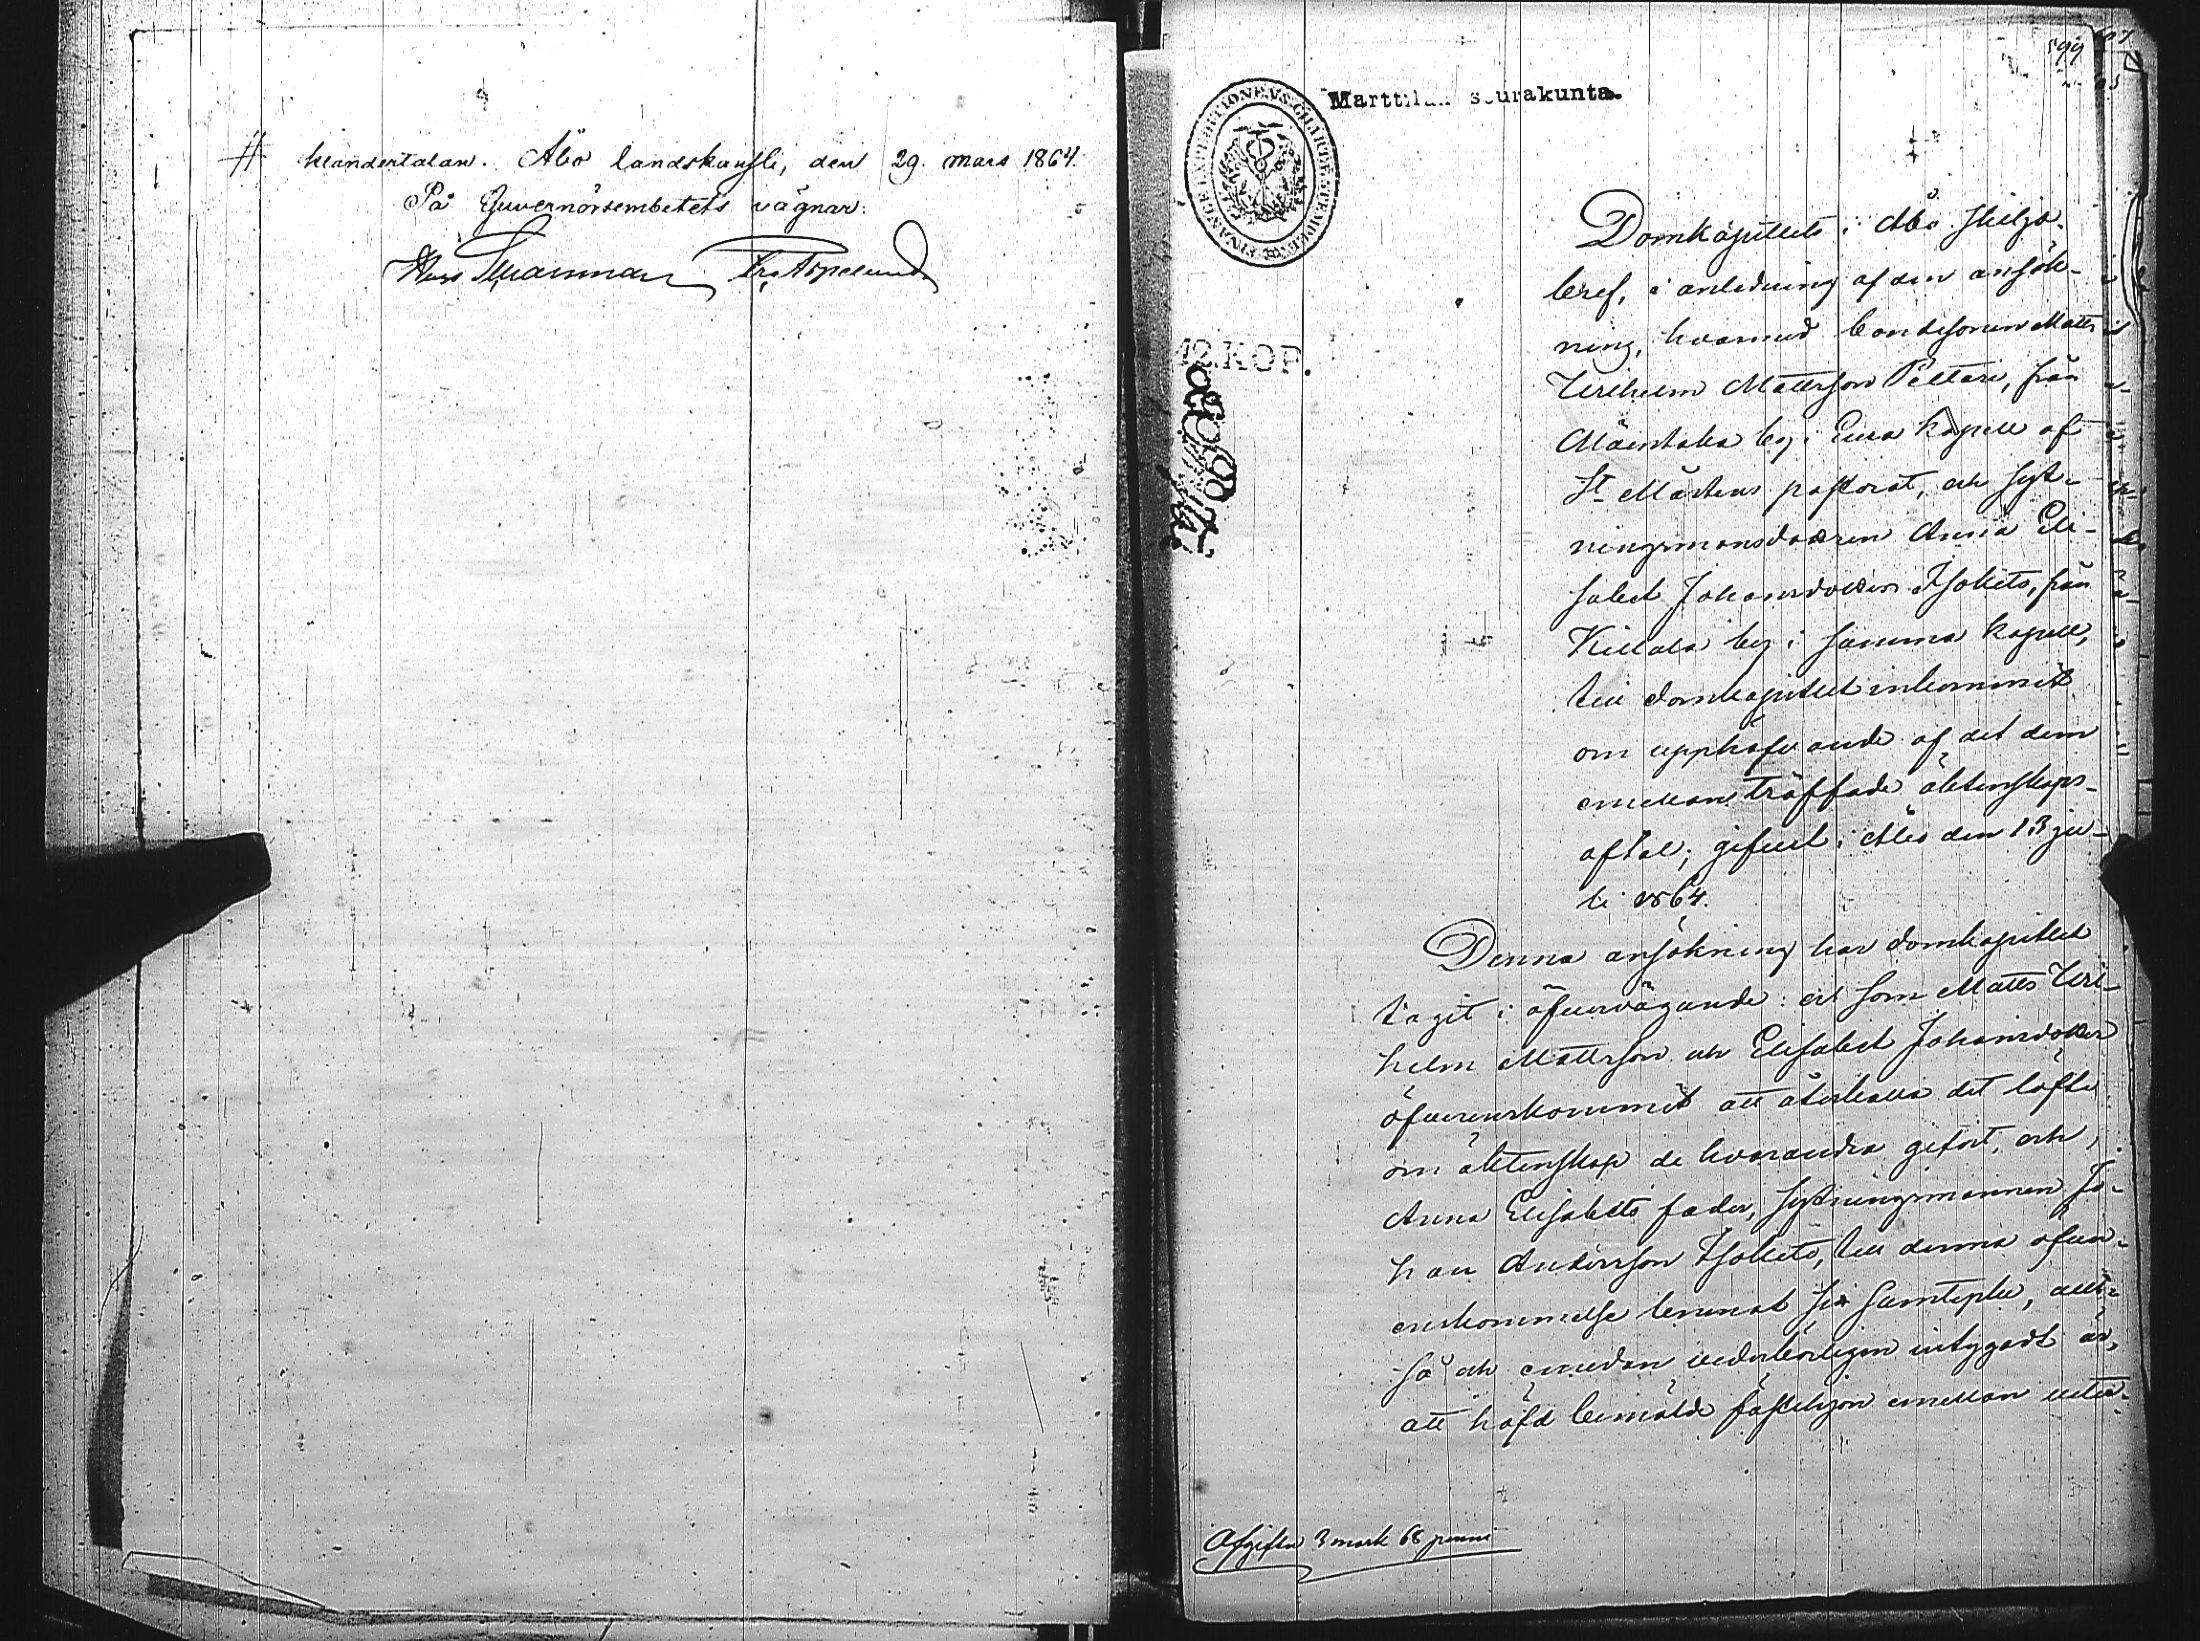 # klandertalan. Åbo landskansli, den 29. mars 1864.
På Guvernörsembetets vägnar:
599
Marttilan seurakunta.
FINANCE EXPEDITIONENS CHARTÆ STEMPLEN
12 KOP.
Domkapitlets i Åbo skiljo-
bref, i anledning af den ansök-
ning, hvarmed bondesonen Matts
Wilhelm Mattsson Pältäri, från
by i Eura kapell af
St Mårtens pastorat, och syt-
ningsmansdottren Anna Eli-
sabet Johansdotter Isokets, från
by i samma kapell,
till domkapitlet inkommit
om upphäfvande af det dem
emellan träffade äktenskaps-
aftal; gifvet i Åbo den 13 ju-
li 1864.
Denna ansökning har domkapitlet
tagit i öfvervägande: och som Matts Wil-
helm Mattsson och Elisabet Johansdotter
öfverenskommit att återkalla det löfte
om äktenskap de hvarandra gifvit, och
Anna Elisabets fader, sytningsmannen Jo-
han Andersson Isokets, till denna öfver-
enskommelse lemnat sit samtycke, allt-
så och emedan vederbörligen intygadt är,
att häfd bemälde fästehjon emellan icke
Afgiften 3 mark 68 penni